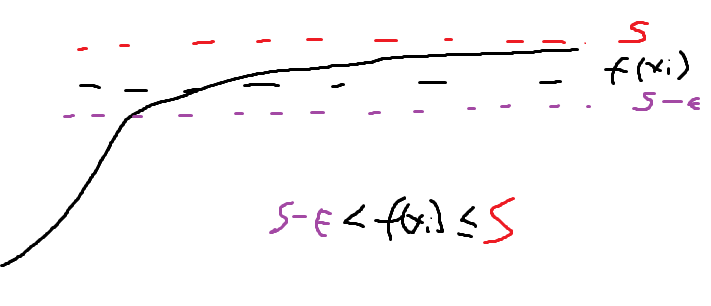 S
f(xi)
S-ε
S-ε < f(xi) ≤ S